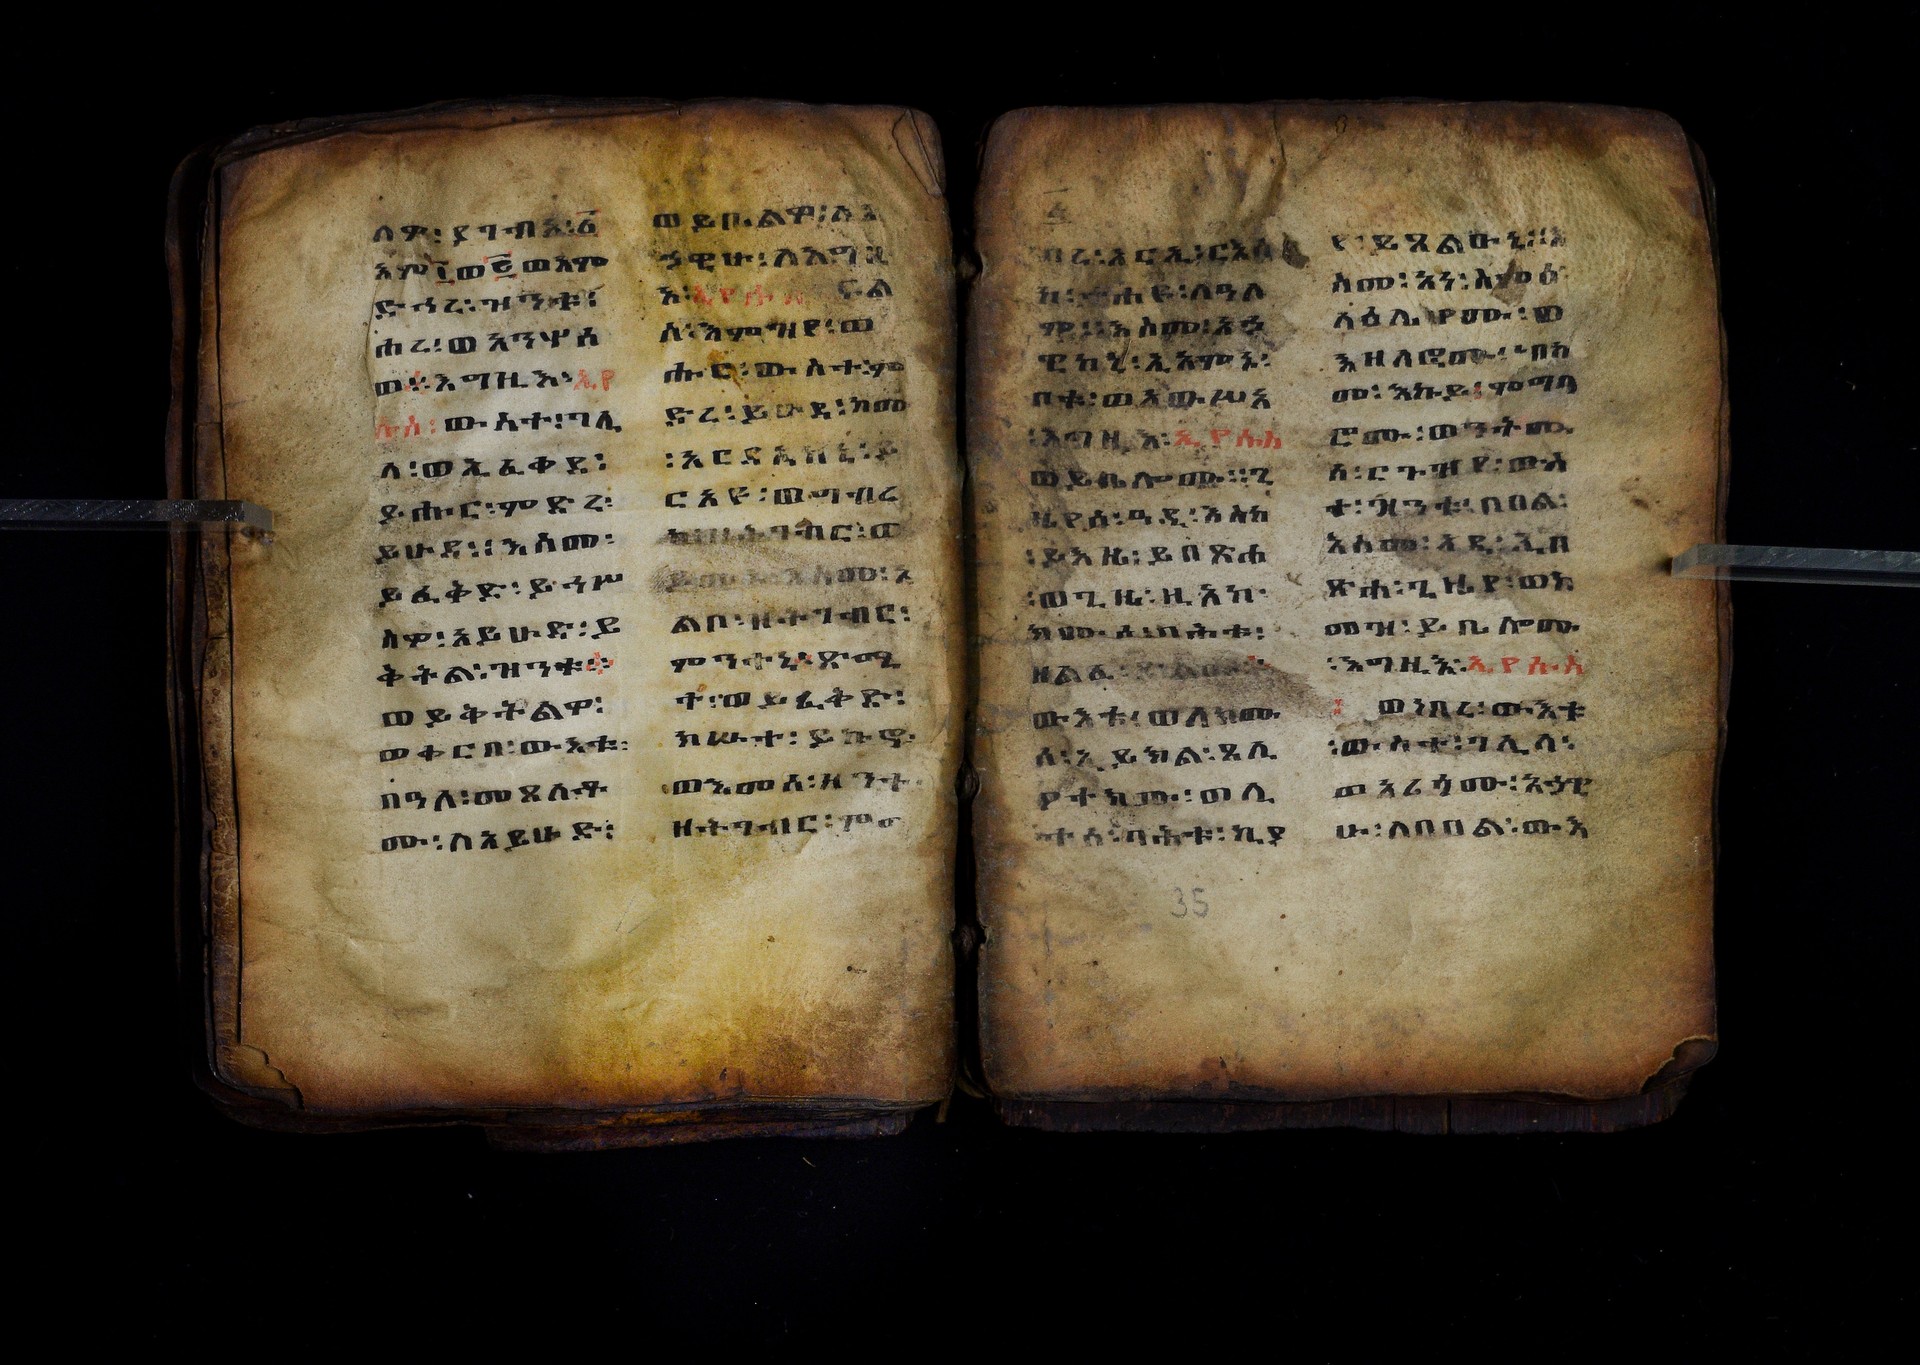 ለም፡ያግብእ፡፩
እም፲ወ፪ወእም
ድኅረ፡ዝንቱ፡
ሐረ፡ወአንሶሰ
ወ፡እግዚእ፡ኢየ
ሱስ፡ውስተ፡ገሊ
ላ፡ወኢፈቀደ፡
ይሑር፡ምድረ፡
ይሁዳ፡፡እስመ፡
ይፈቅድ፡ይኅሥ
ሥዎ፡አይሁድ፡ይ
ቅትል፡ዝንቱ፡
ወይቅትልዎ፡
ወቀርበ፡ውእቱ፡
በዓለ፡መጸለቶ
ሙ፡ለአይሁድ፡
ወይቤልዎ፡አኀ
ዊሁ፡ለእግዚ
እ፡ኢየሱስ ፍል
ስ፡እምዝየ፡ወ
ሑር፡ውስተ፡ም
ድረ፡ይሁዳ፡ከመ
፡አርዳኢከኒ፡ይ
ርአዩ፡ወግብረ
ከ፡ዘትገብር፡ወ
እስመ፡አ
ልቦ፡ዘይገብር፡
ምንተኒ፡ጽሚ
ተ፡ወይፈቅድ፡
ክሡተ፡ይኩኖ፡
ወእመሰ፡ዘንተ
ዘትገብር፡ምግ
ባረ፡አርኢ፡ርእሰ
ከ፡ለዓለ
ም፡፡እስመ፡አኀ
ዊከኒ፡ኢአምኑ፡
ቦቱ፡ወአውሥአ
፡እግዚእ፡ኢየሱስ
ወይቤሎሙ፡፡ጊ
ዜየሰ፡ዓዲ፡እስከ
፡ይእዜ፡ይበጽሕ
፡ወጊዜ፡ዚአከ
ክሙሰ፡በሕቱ፡
ዘልፈ፡
ውእቱ፡ወለክሙ
ሰ፡ኢይክል፡ጸሊ
ዖተክሙ፡ወሊ
ተሰ፡ባሕቱ፡ኪያ
የ፡ይጸልሁኒ፡፡እ
ስመ፡አነ፡ስምዕ
ላዕሌሆሙ፡ወ
እዘልፎሙ፡በከ
መ፡እኩይ፡ምግባ
ሮሙ፡ወአንትሙ
ሰ፡ዕርጉ፡ውስ
ተ፡ዝንቱ፡በዐል፡
እስመ፡ዓዲ፡ኢበ
ጽሐ፡ጊዜየ፡ወከ
መዝ፡ይቤሎሙ
፡እግዚእ፡ኢየሱስ
፡ወነበረ፡ውእቱ
፡ውስተ፡ገሊላ፡
ወእምዝ፡ዐሪጎሙ፡አኀዊ
ሁ፡ለበዐል፡ውእ
35